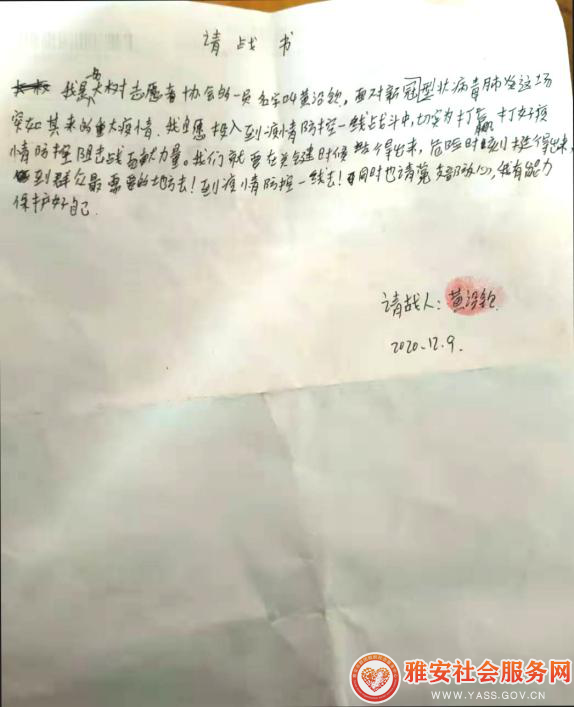 请战书
我是大树志愿者协会的一员名字叫黄沿钦，面对新冠型状病青肺炎这场
突如其来的重大疫情。我自愿投入到疫情防控一线战斗中，切实为打赢打好疫
情防控阻击战贡献力量。我们就要在关键时候站得出来，危险时刻挺得出来，
到群众最需要的地方去！到疫情防控一线去！同时也请党支部放心，我有能力
保护好自己。
请战人：黄沿钦
2020.12.9.
雅安社会服务网
WWW.YASS.GOV.CN